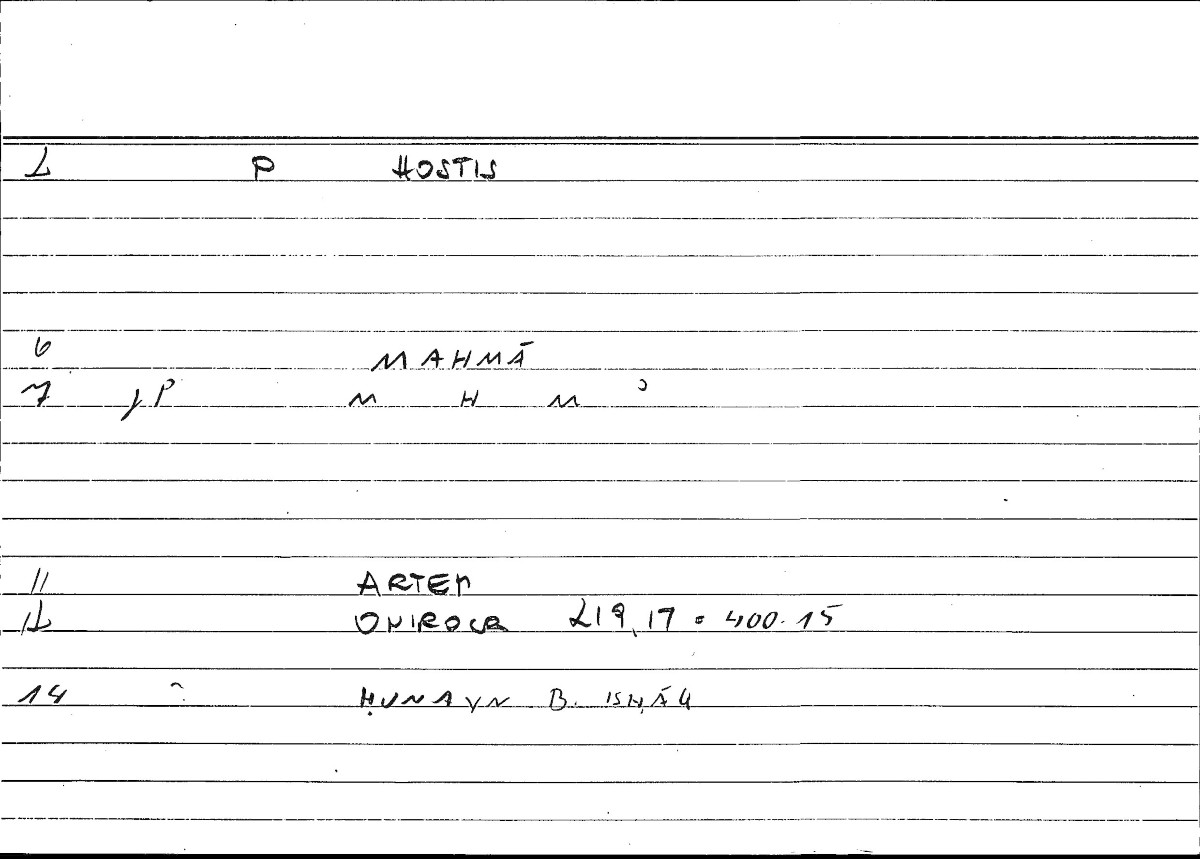 2 P HOSTIS
6 MAHMĀ
7 jP M H M ʾ
11 ARTEM
12 ONIROCR 219,17 = 400.15
14 ḤUNAYN B. ISḤĀQ